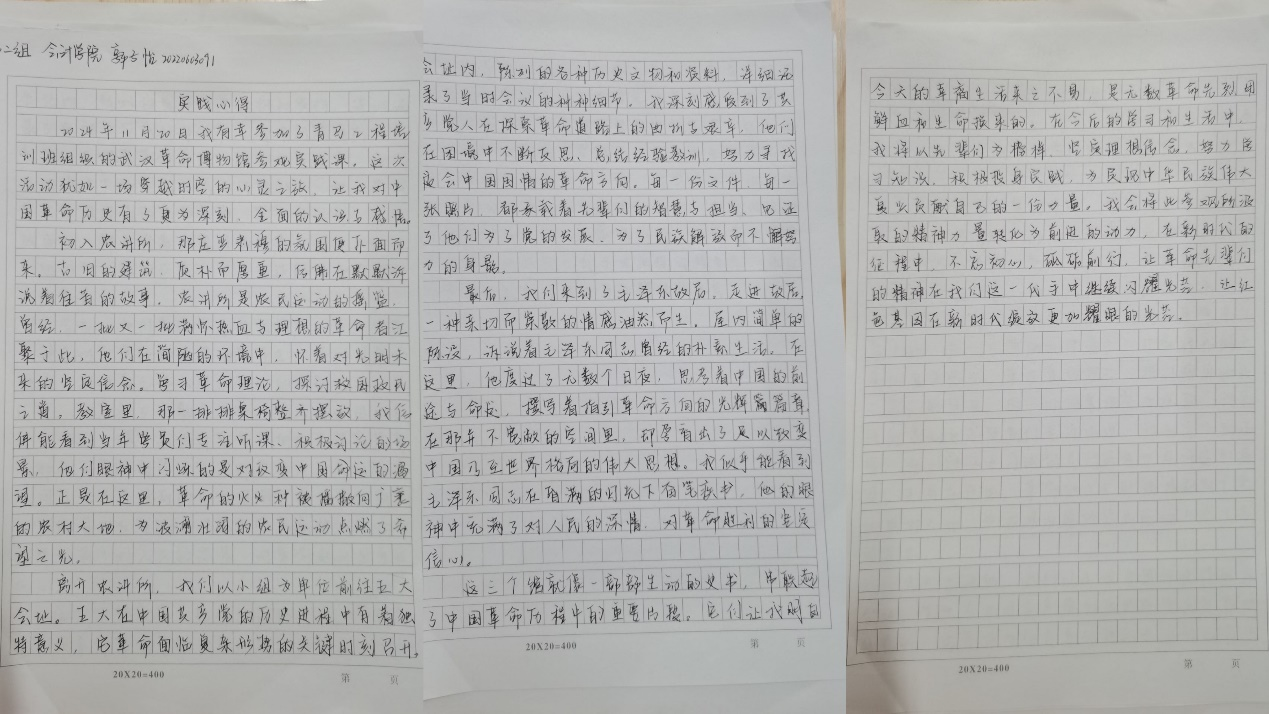 二组 会计学院 20220603091
实践心得
2024年11月20日我有幸参加了青马工程培
训班组织的武汉革命博物馆参观实践课。这次
活动犹如一场穿越时空的心灵之旅，让我对中
国革命历史有了更为深刻、全面的认识与感悟。
初入农讲所，那庄严肃穆的氛围便扑面而
来。古旧的建筑，质朴而厚重，仿佛在默默诉
说着往昔的故事。农讲所是农民运动的摇篮，
曾经，一批又一批满怀热血与理想的革命者汇
聚于此，他们在简陋的环境中，怀着对光明未
来的坚定信念。学习革命理论，探讨救国救民
之道。教室里，那一排排桌椅整齐摆放，我仿
佛能看到当年学员们专注听课、积极讨论的场
景，他们眼神中闪烁的是对改变中国命运的渴
望。正是在这里，革命的火种被播撒向广袤
的农村大地，为波涛汹涌的农民运动点燃了希
望之光。
离开农讲所，我们以小组为单位前往五大
会址。五大在中国共产党的历史进程中有着独
特意义，它革命面临复杂形势的关键时刻召开。
会址内，陈列的各种历史文物和资料，详细记
录了当时会议的种种细节。我深刻感受到了共
产党人在探索革命道路上的曲折与艰辛，他们
在困境中不断反思、总结经验教训，努力寻找
契合中国国情的革命方向。每一份文件，每一
张照片，都承载着先辈们的智慧与担当，见证
了他们为了党的发展、为了民族解放而不懈努
力的身影。
最后，我们来到了毛泽东故居。走进故居，
一种亲切而崇敬的情感油然而生。屋内简单的
陈设，诉说着毛泽东同志曾经的朴素生活。在
这里，他度过了无数个日夜，思考着中国的前
途与命运，撰写着指引革命方向的光辉篇章。
在那并不宽敞的空间里，却孕育出了足以改变
中国乃至世界格局的伟大思想。我似乎能看到
毛泽东同志在昏黄的灯光下奋笔疾书，他的眼
神中充满了对人民的深情，对革命胜利的坚定
信心。
这三个馆就像一部部生动的史书，串联起
了中国革命历程中的重要片段。它们让我明白
今天的幸福生活来之不易，是无数革命先烈用
鲜血和生命换来的。在今后的学习和生活中，
我将以先辈们为榜样，坚定理想信念，努力学
习知识，积极投身实践，为实现中华民族伟大
复兴贡献自己的一份力量。我会将此次参观所汲
取的精神力量转化为前进的动力，在新时代的
征程中，不忘初心，砥砺前行，让革命先辈们
的精神在我们这一代手中继续闪耀光芒，让红
色基因在新时代绽放更加耀眼的光芒。
20X20=400
第 页
20X20=400
第 页
20X20=400
第 页